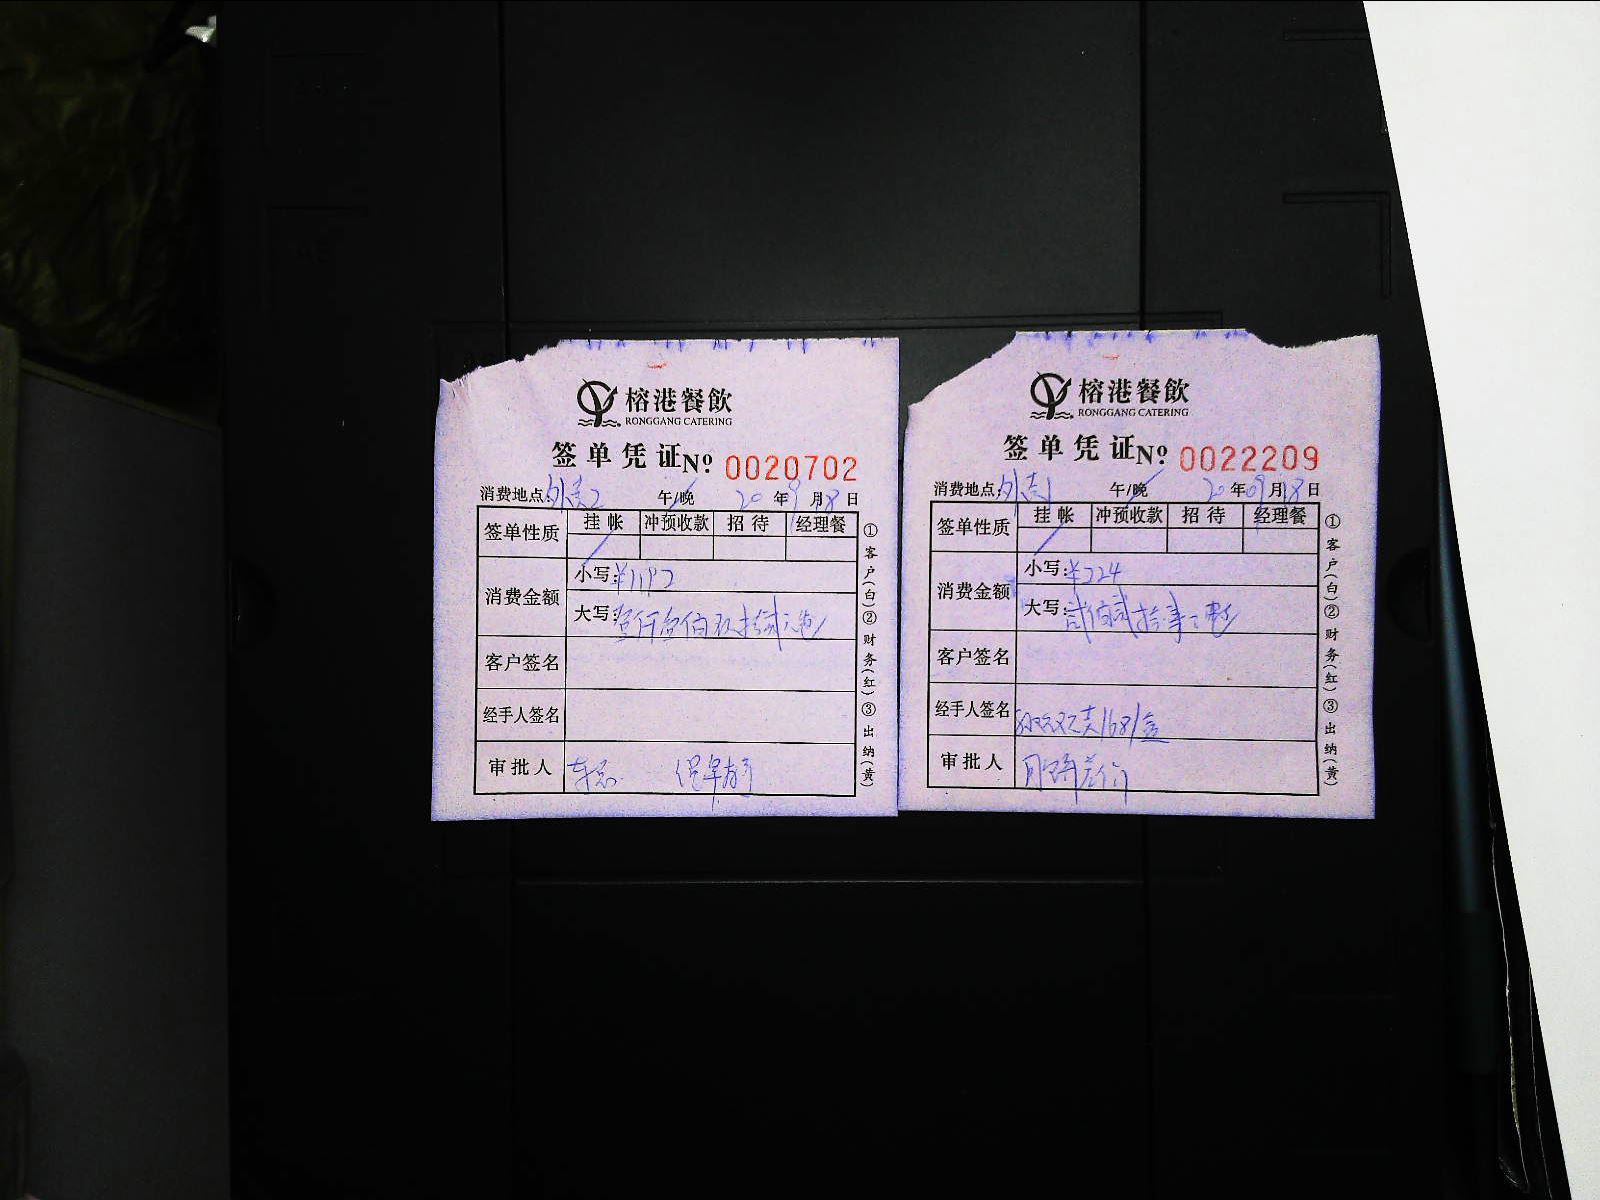 榕港餐飲
RONGGANG CATERING
签单凭证 Nº 0020702
消费地点: 外卖2 午/晚 20年9月18日
签单性质 挂帐 冲预收款 招待 经理餐
消费金额 小写: ¥1192
大写: 壹仟壹佰玖拾贰元
客户签名
经手人签名
审批人
①客户(白)②财务(红)③出纳(黄)
榕港餐飲
RONGGANG CATERING
签单凭证 Nº 0022209
消费地点: 外卖 午/晚 20年09月18日
签单性质 挂帐 冲预收款 招待 经理餐
消费金额 小写: ¥224
大写: 贰佰贰拾
客户签名
经手人签名
审批人
①客户(白)②财务(红)③出纳(黄)